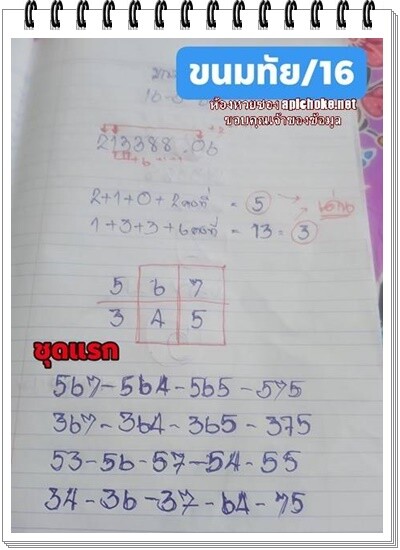 ขนมทัย/16
ห้องหวยซอง apichoke.net
ขอบคุณเจ้าของข้อมูล
213388.06
2+1+0+2คงที่ = 5
1+3+3+6คงที่ = 13 = 3
เด่น
5 6 7
3 4 5
ชุดแรก
567-564-565-575
367-364-365-375
53-56-57-54-55
34-36-37-64-75